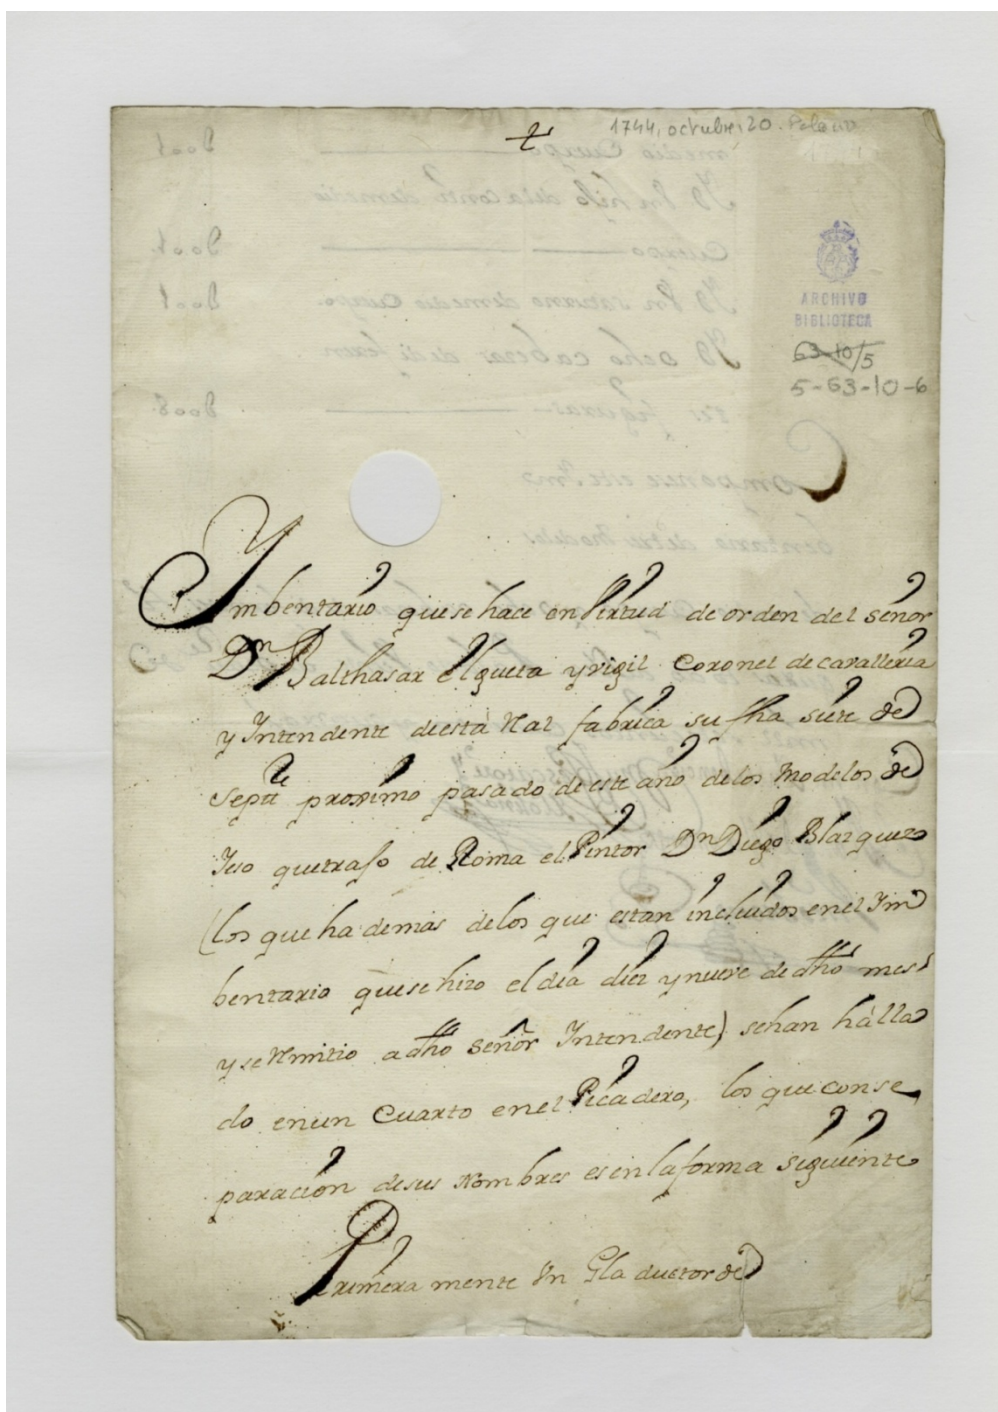 1744, octubre, 20. Palacio
ARCHIVO
BIBLIOTECA
63-10/5
5-63-10-6
Ymbentario que se hace en Virtud de orden del señor
Dn Balthasar Elgueta y vigil Coronel de cavalleria
y Intendente de esta Real fabrica su fha siete de
Septre proximo pasado de este año de los Modelos de
Yeso que trajo de Roma el Pintor Dn Diego Blazquez
(los que ha demás de los que estan incluidos en el Ym
bentario que se hizo el dia diez y nueve de dho mes
y se Rmitio a dho señor Intendente) se han hàlla
do en un Cuarto en el Picadero, los que con se
paracion de sus Nombres es en la forma siguiente
Primera mente Vn Gla duator de